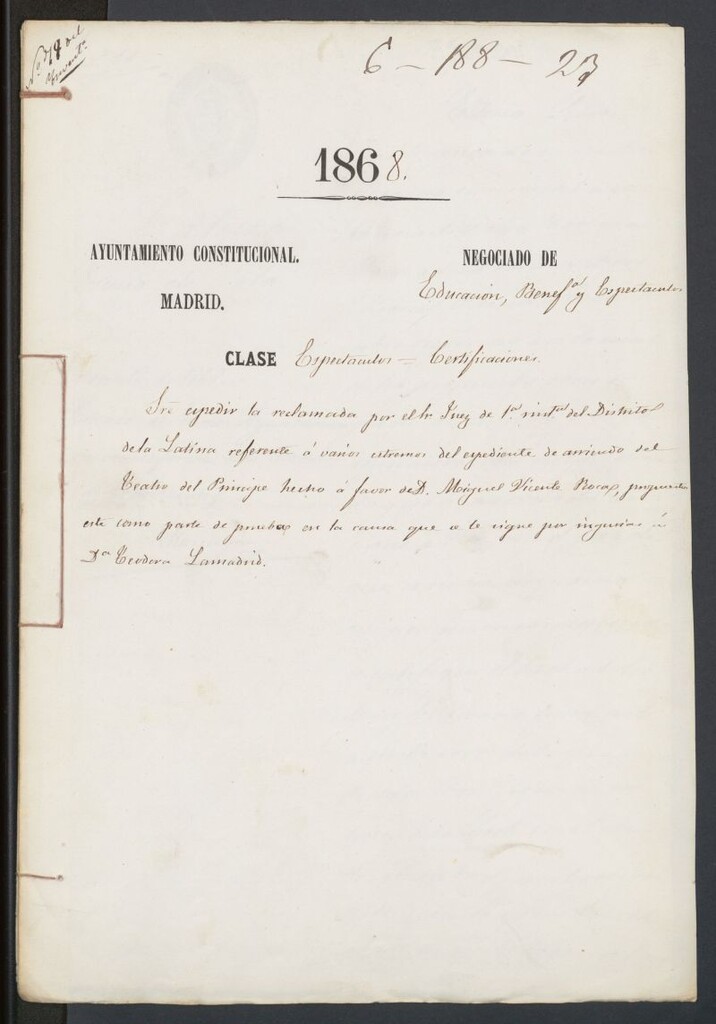 Nº 78 del
6 - 188 - 23
1868.
AYUNTAMIENTO CONSTITUCIONAL.
MADRID.
NEGOCIADO DE
Educacion, Benefª y Espectaculos
CLASE Espectaculos = Certificaciones.
espedir la reclamada por el Sr Juez de 1ª instª del Distrito
de la Latina referente á varios estremos del espediente de arriendo del
Teatro del Principe hecho á favor de D. Miguel Vicente Roca, propuesta
este como parte de prueba en la causa que se le sigue por injurias á
Dª Teodora Lamadrid.